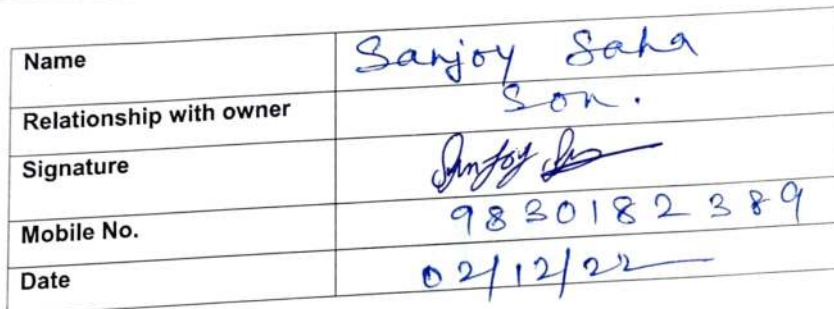 Name Sanjoy Saha
Relationship with owner Son.
Signature Sanjoy
Mobile No. 9830182389
Date 02/12/22